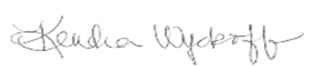 Kendra Wyckoff